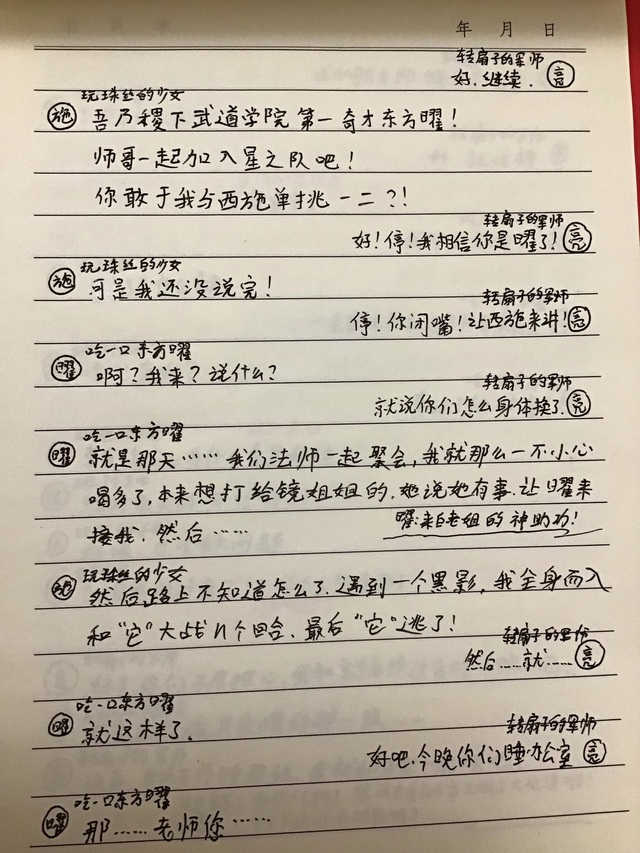 年 月 日
转扇子的军师
好,继续. 亮
玩珠丝的少女
施 吾乃稷下武道学院第一奇才东方曜!
师哥一起加入星之队吧!
你敢于我与西施单挑一二?!
转扇子的军师
好!停!我相信你是曜了! 亮
玩珠丝的少女
施 可是我还没说完!
转扇子的军师
停!你闭嘴!让西施来讲! 亮
吃一口东方曜
曜 啊?我来?说什么?
转扇子的军师
就说你们怎么身体换了. 亮
吃一口东方曜
曜 就是那天……我们法师一起聚会,我就那么一不小心
喝多了,本来想打给镜姐姐的,她说她有事.让曜来
接我.然后……
曜:来自老姐的神助功!
玩珠丝的少女
施 然后路上不知道怎么了.遇到一个黑影,我全身而入
和“它”大战n个回合、最后“它”逃了!
转扇子的军师
然后……就…… 亮
吃一口东方曜
曜 就这样了.
转扇子的军师
好吧.今晚你们睡办公室 亮
吃一口东方曜
曜 那……老师您……